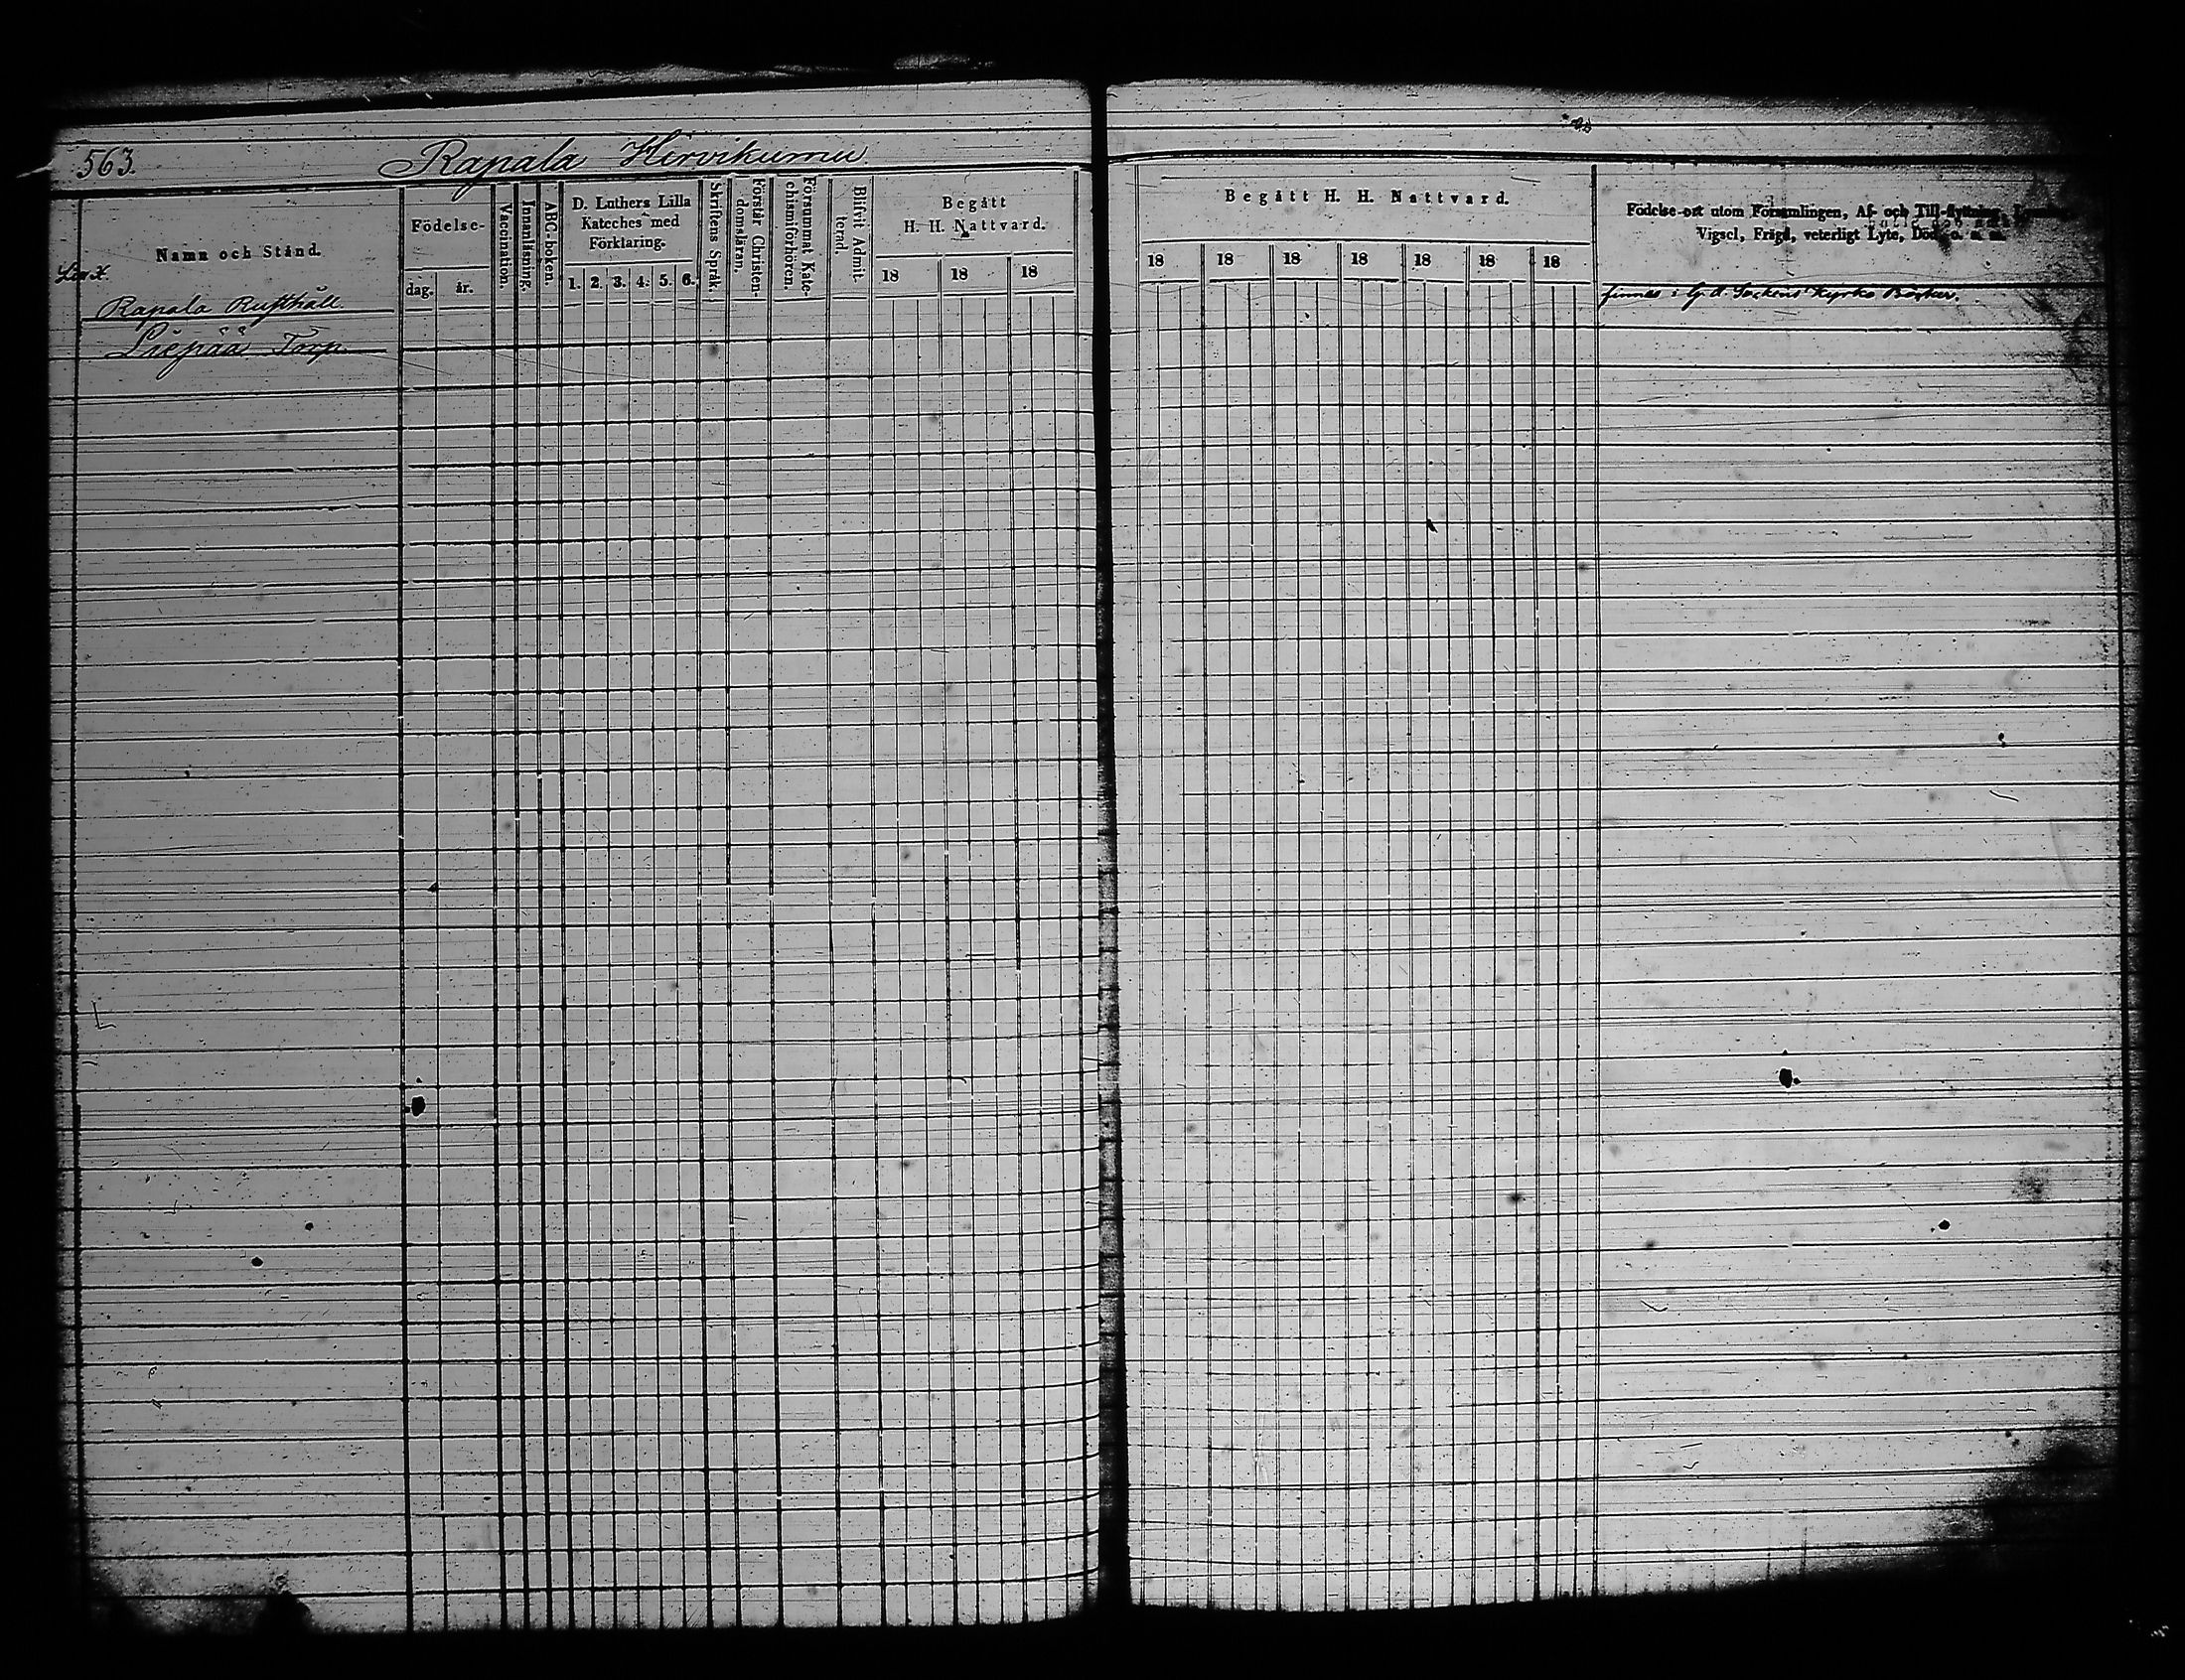 563. Rapala Hirvikumu
Namn och Stånd.
Födelse-
dag. år.
Vaccination.
Innanläsning.
ABC-boken.
D. Luthers Lilla
Kateches med
Förklaring.
1. 2. 3. 4. 5. 6.
Skriftens Språk.
Förstår Christen-
domsläran.
Försummat Kate-
chismiförhören.
Blifvit Admit-
terad.
Begått
H. H. Nattvard.
18 18 18
Rapala Rusthåll
Liepää Torp.
Begått H. H. Nattvard.
18 18 18 18 18 18 18
Födelse-ort utom Församlingen, Af- och Till-flyttning,
Vigsel, Frägd, veterligt Lyte, Död, o. s. m.
finnes i Sockens Kyrko Böcker.